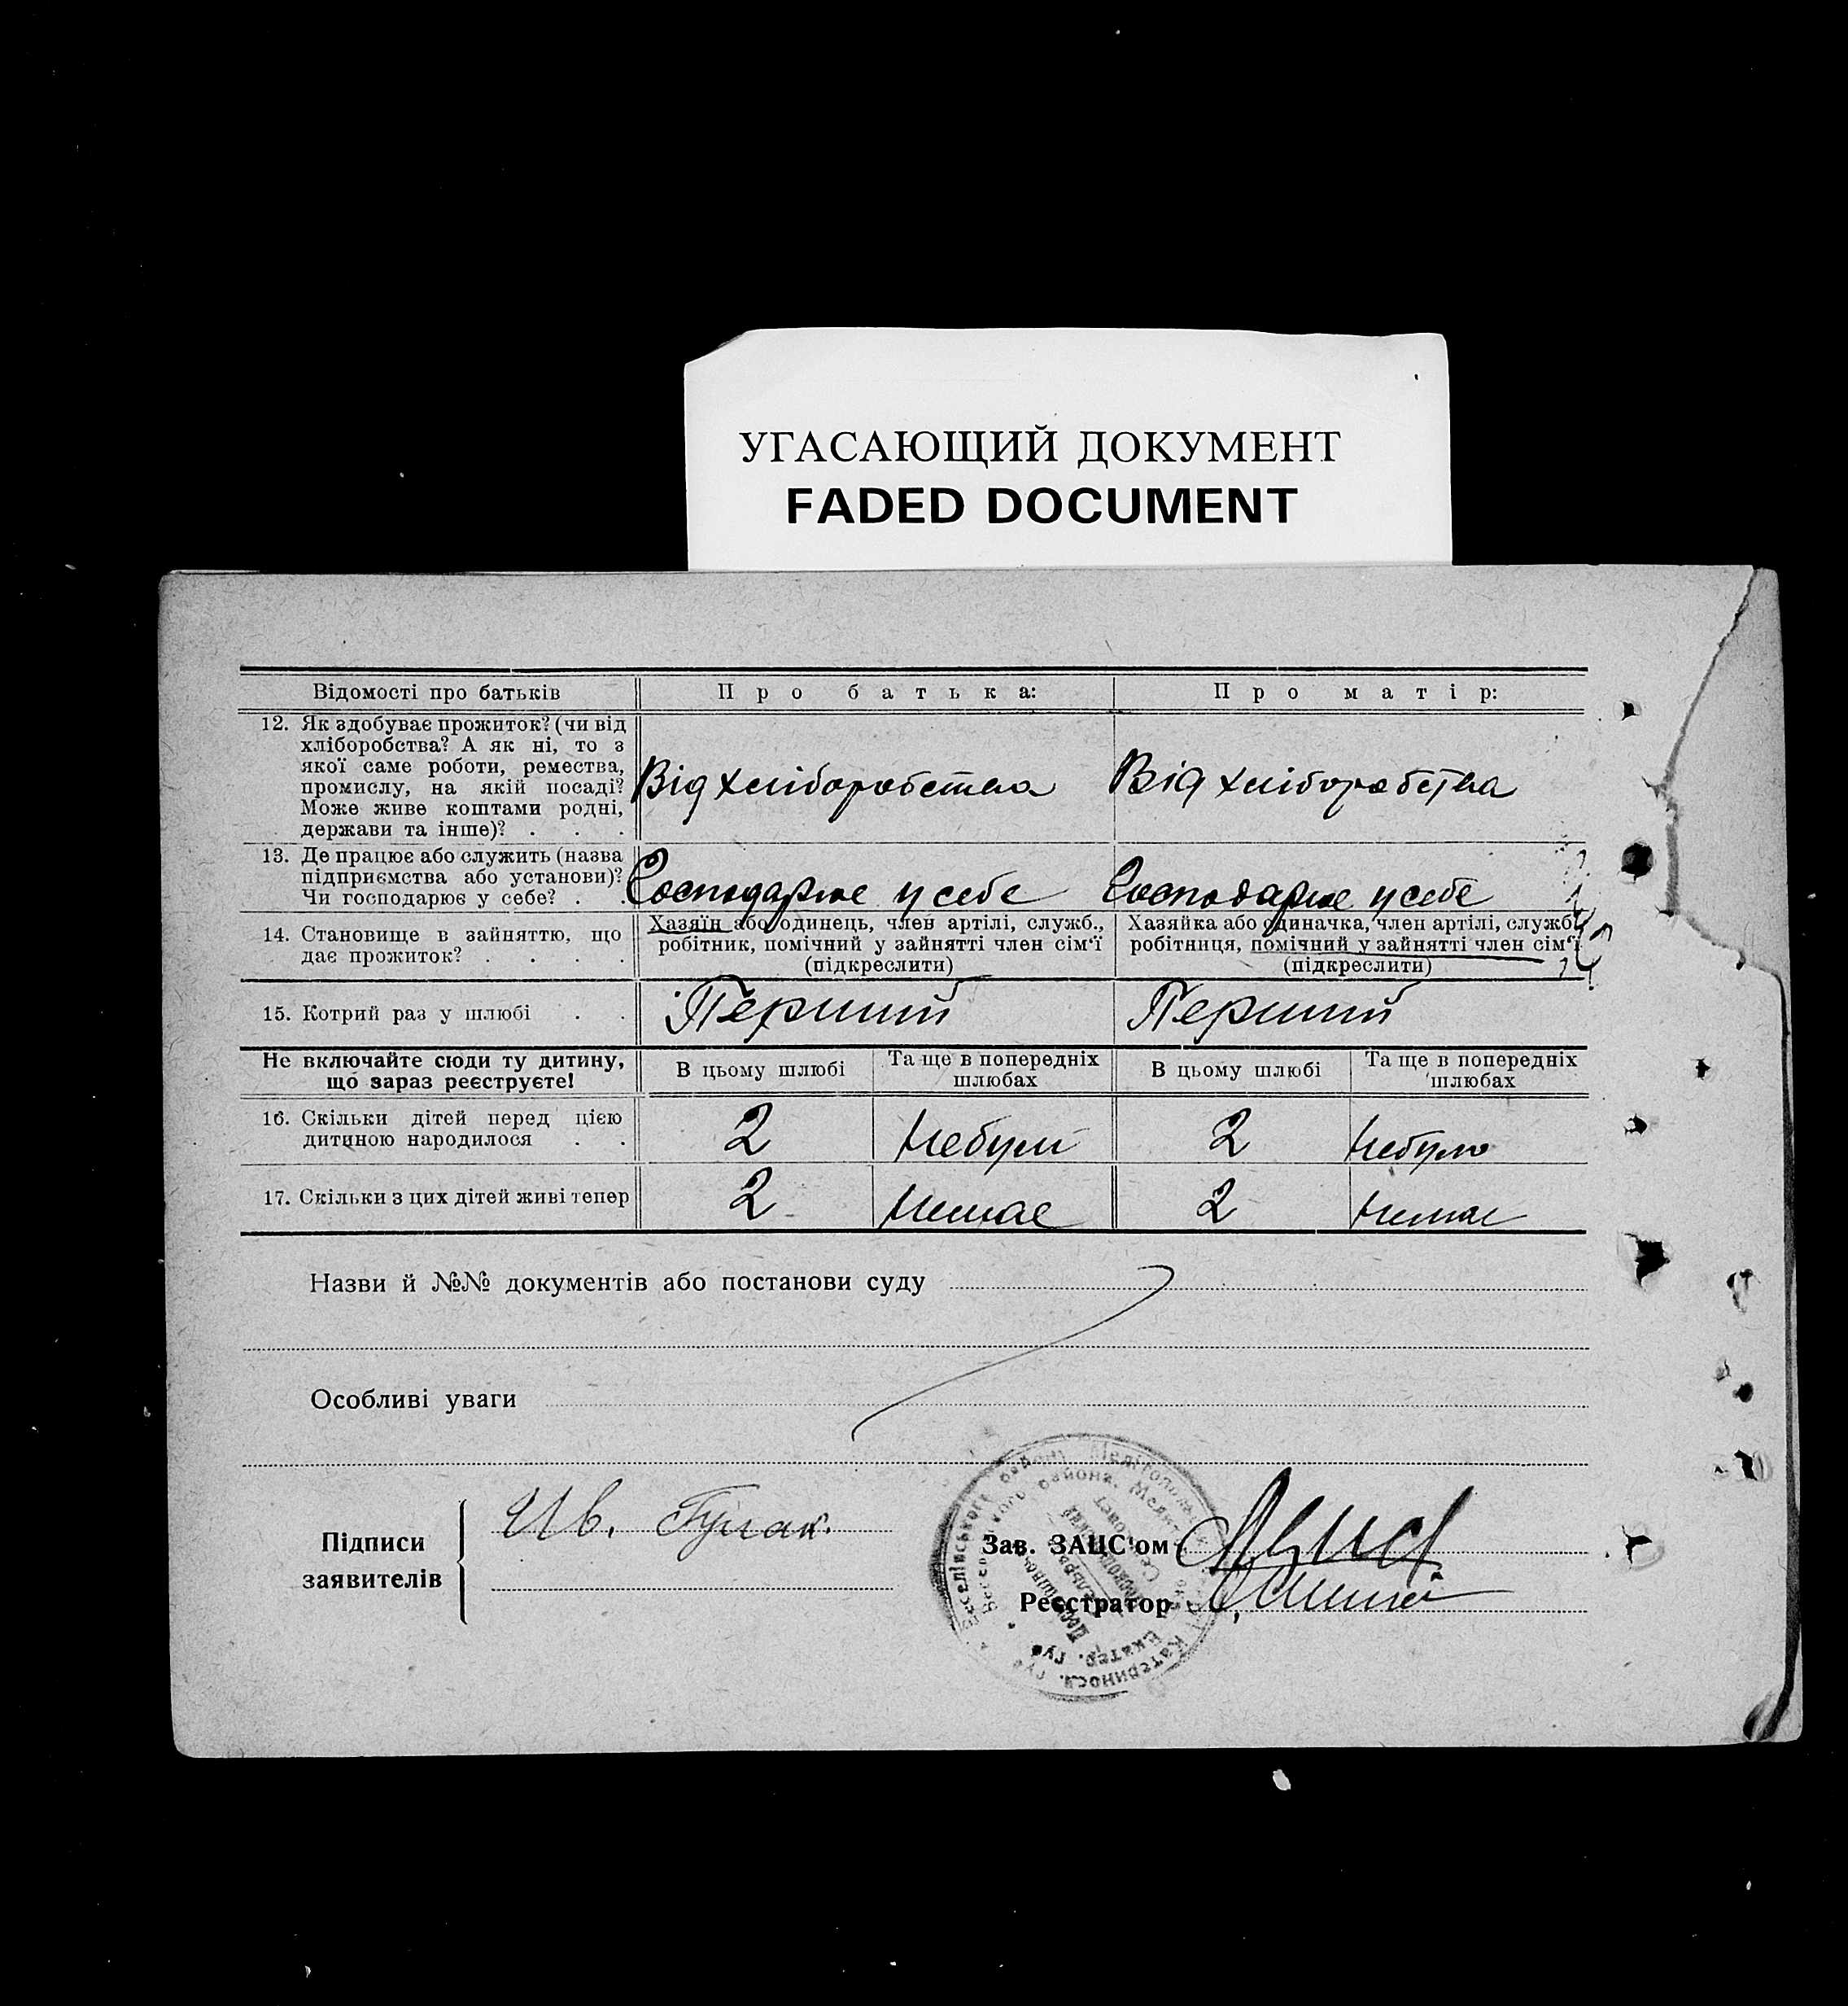 УГАСАЮЩИЙ ДОКУМЕНТ
FADED DOCUMENT
Відомості про батьків
Про батька:
Про матір:
12. Як здобуває прожиток? (чи від
хліборобства? А як ні, то з
якої саме роботи, ремества,
промислу, на якій посаді?
Може живе коштами родні,
держави та інше)? . . .
Від хліборобства
Від хліборобства
13. Де працює або служить (назва
підприємства або установи)?
Чи господарює у себе? . .
Господарює у себе
Господарює у себе
14. Становище в зайняттю, що
дає прожиток? . . . .
Хазяїн або одинець, член артілі, служб.,
робітник, помічний у зайнятті член сім'ї
(підкреслити)
Хазяйка або одиначка, член артілі, служб.
робітниця, помічний у зайнятті член сім'ї
(підкреслити)
15. Котрий раз у шлюбі . .
Перший
Перший
Не включайте сюди ту дитину,
що зараз реєструєте!
В цьому шлюбі
Та ще в попередніх
шлюбах
В цьому шлюбі
Та ще в попередніх
шлюбах
16. Скільки дітей перед цією
дитиною народилося . .
2
Небули
2
Небуло
17. Скільки з цих дітей живі тепер
2
Немає
2
Немає
Назви й №№ документів або постанови суду
Особливі уваги
Підписи
заявителів
Ив. Гулак.
Зав. ЗАЦС'ом
Реєстратор
Веселівського району Мелітопольської
Катериносл. губ.
Екатер. губ.